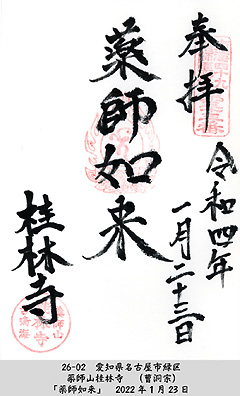 奉拝
令和四年
一月二十三日
薬師如来
桂林寺
26-02 愛知県名古屋市緑区
薬師山桂林寺 （曹洞宗）
「薬師如来」 2022年1月23日